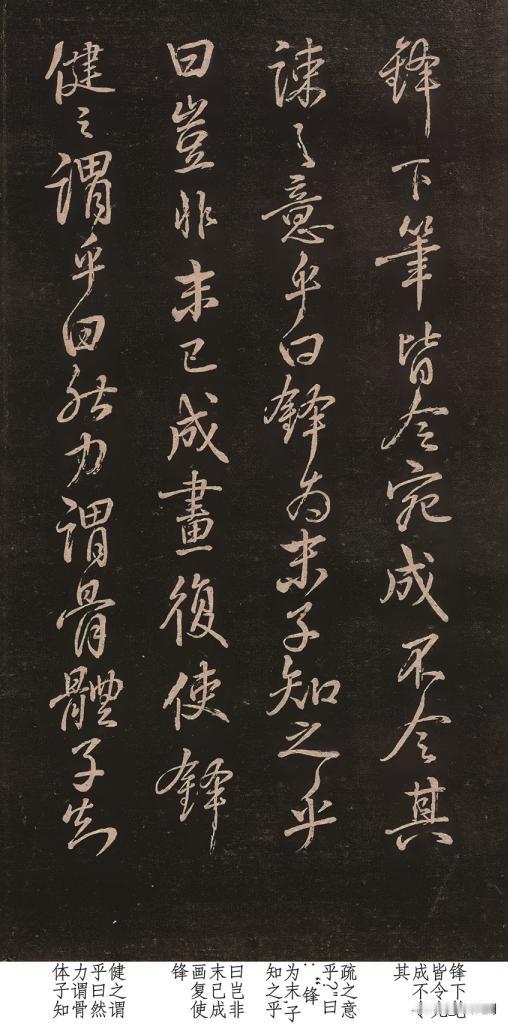 鋒下筆皆令宛成不令其
疎之意乎曰鋒為末子知之乎
曰豈非末已成畫復使鋒
健之謂乎曰然力謂骨體子知
锋下
皆令
成不
其
疏之意
乎？曰
：“锋
为末子
知之乎
曰岂非
末已成
画复使
锋
健之谓
乎曰然
力谓骨
体子知